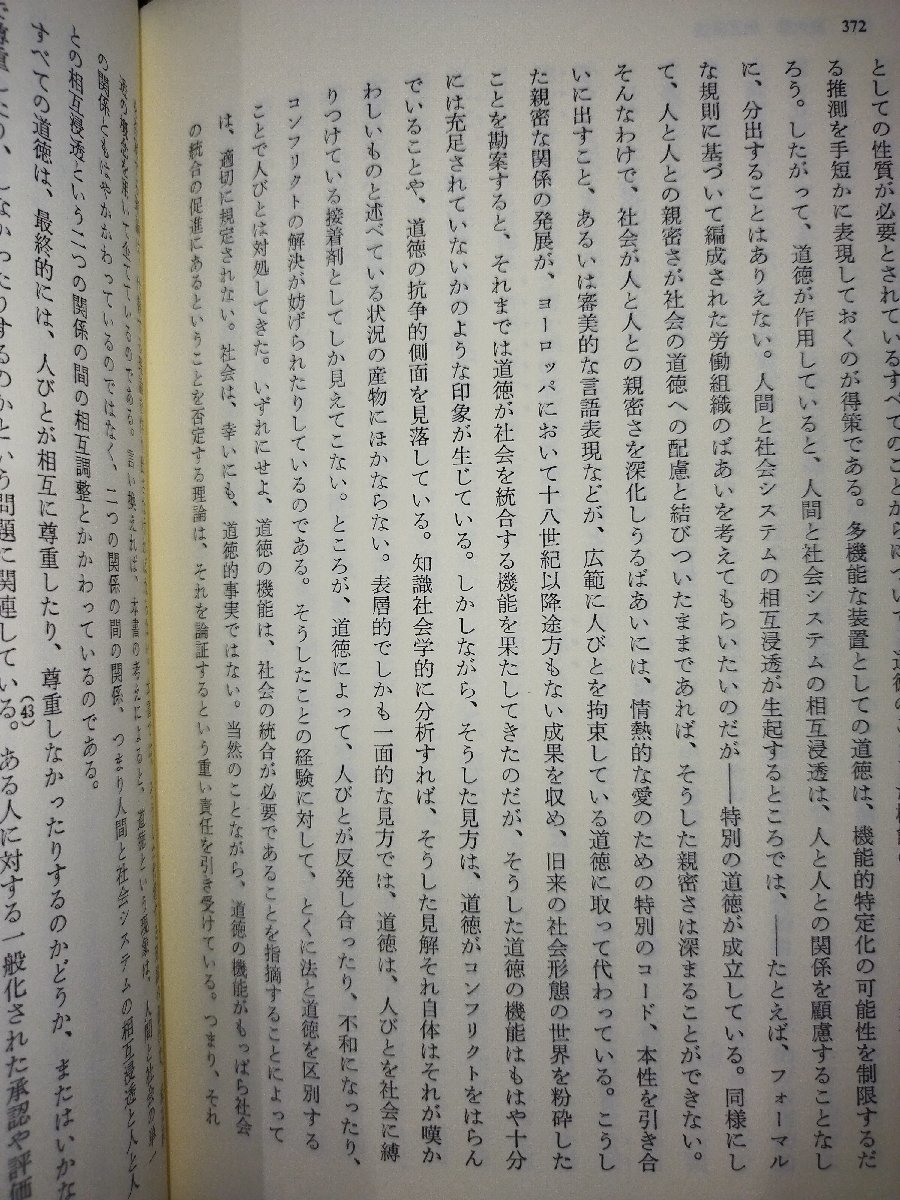 372
としての性質が必要とされているすべてのことがらについて、道徳の
る推測を手短かに表現しておくのが得策である。多機能な装置としての道徳は、機能的特定化の可能性を制限するだ
ろう。したがって、道徳が作用していると、人間と社会システムの相互浸透は、人と人との関係を顧慮することなし
に、分出することはありえない。人間と社会システムの相互浸透が生起するところでは、――たとえば、フォーマル
な規則に基づいて編成された労働組織のばあいを考えてもらいたいのだが――特別の道徳が成立している。同様にし
て、人と人との親密さが社会の道徳への配慮と結びついたままであれば、そうした親密さは深まることができない。
そんなわけで、社会が人と人との親密さを深化しうるばあいには、情熱的な愛のための特別のコード、本性を引き合
いに出すこと、あるいは審美的な言語表現などが、広範に人びとを拘束している道徳に取って代わっている。こうし
た親密な関係の発展が、ヨーロッパにおいて十八世紀以降途方もない成果を収め、旧来の社会形態の世界を粉砕した
ことを勘案すると、それまでは道徳が社会を統合する機能を果たしてきたのだが、そうした道徳の機能はもはや十分
には充足されていないかのような印象が生じている。しかしながら、そうした見方は、道徳がコンフリクトをはらん
でいることや、道徳の抗争的側面を見落している。知識社会学的に分析すれば、そうした見解それ自体はそれが嘆か
わしいものと述べている状況の産物にほかならない。表層的でしかも一面的な見方では、道徳は、人びとを社会に縛
りつけている接着剤としてしか見えてこない。ところが、道徳によって、人びとが反発し合ったり、不和になったり、
コンフリクトの解決が妨げられたりしているのである。そうしたことの経験に対して、とくに法と道徳を区別する
ことで人びとは対処してきた。いずれにせよ、道徳の機能は、社会の統合が必要であることを指摘することによって
は、適切に規定されない。社会は、幸いにも、道徳的事実ではない。当然のことながら、道徳の機能がもっぱら社会
の統合の促進にあるということを否定する理論は、それを論証するという重い責任を引き受けている。つまり、それ
の概念を用いて企てているのである。言い換えれば、本書の考えによると、道徳という現象は、人間と社会の
の関係ともはやかかわっているのではなく、二つの関係の間の関係、つまり人間と社会システムの相互浸透と人と人
との相互浸透という二つの関係の間の相互調整とかかわっているのである。
すべての道徳は、最終的には、人びとが相互に尊重したり、尊重しなかったりするのかどうか、またはいかな
尊重したり、しなかったりするのかという問題に関連している。(43)ある人に対する一般化された承認や評価